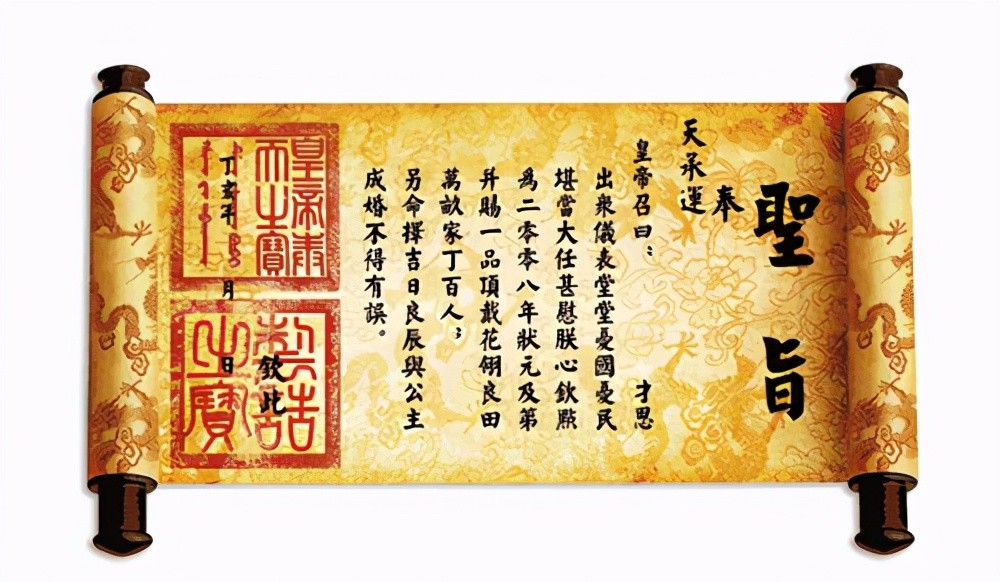 聖旨
奉
天承運
皇帝召曰： 才思
出衆儀表堂堂憂國憂民
堪當大任甚慰朕心欽點
為二零零八年狀元及第
并賜一品頂戴花翎良田
萬畝家丁百人；
另命擇吉日良辰與公主
成婚不得有誤。
欽此
丁亥年 月 日
皇帝奉
天之寶
制誥
之寶